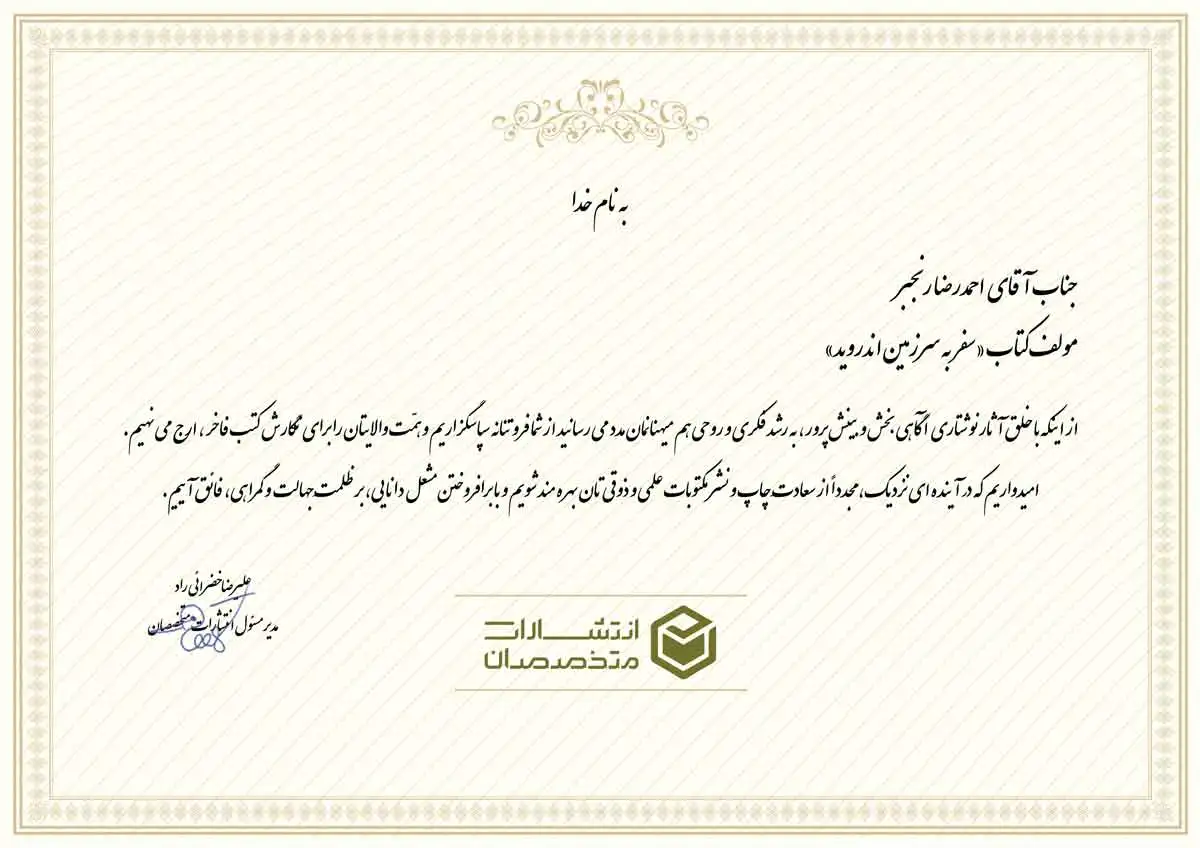 به نام خدا
جناب آقای احمدرضا رنجبر
مولف کتاب «سفر به سرزمین اندروید»
از اینکه با خلق آثار نوشتاری آگاهی بخش و بینش پرور، به رشد فکری و روحی هم میهنانمان مدد می رسانید از شما فروتنانه سپاسگزاریم و همّت والایتان را برای نگارش کتب فاخر، ارج می نهیم.
امیدواریم که در آینده ای نزدیک، مجدداً از سعادت چاپ و نشر مکتوبات علمی و ذوقی تان بهره مند شویم و با برافروختن مشعل دانایی، بر ظلمت جهالت و گمراهی، فائق آییم.
علیرضا خضرائی راد
مدیر مسئول انتشارات متخصصان
انتشارات
متخصصان